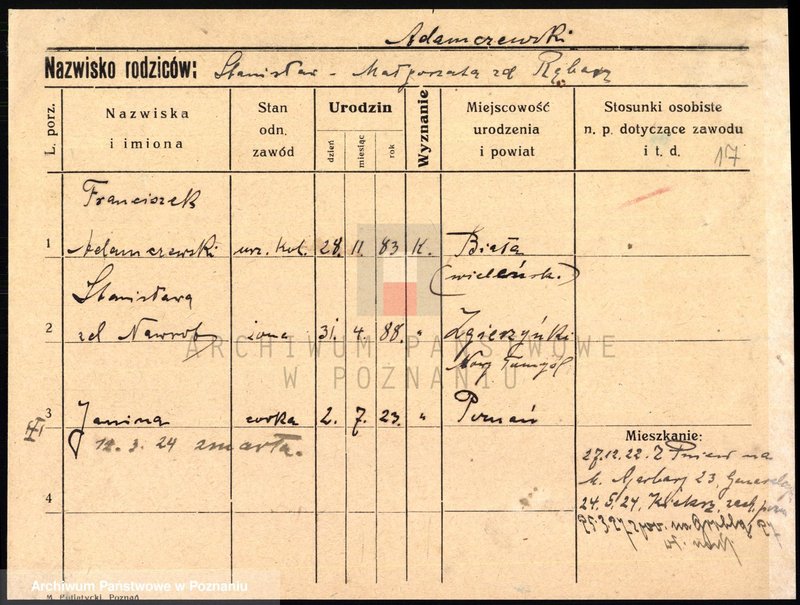 Adamczewski
Nazwisko rodziców: Stanisław - Małgorzata zd Rębacz
L. porz.
Nazwiska i imiona
Stan odn. zawód
Urodzin
dzień
miesiąc
rok
Wyznanie
Miejscowość urodzenia i powiat
Stosunki osobiste n. p. dotyczące zawodu i t. d.
17
Franciszek
1 Adamczewski urz. kol. 28. 11. 83 K. Biała
(wieleńsk.)
Stanisława
2 zd Nawrot żona 31. 4. 88. " Zgierzyński
Nowy Tomyśl
3 Janina corka 2. 7. 23. " Poznań
12. 3. 24 zmarła.
Mieszkanie:
27.12.22. Z Pniew na
23,
4 24. 5. 24, Kiekrz, zach. pozn
ARCHIWUM PAŃSTWOWE
W POZNANIU
Archiwum Państwowe w Poznaniu
M. Putiatycki, Poznań